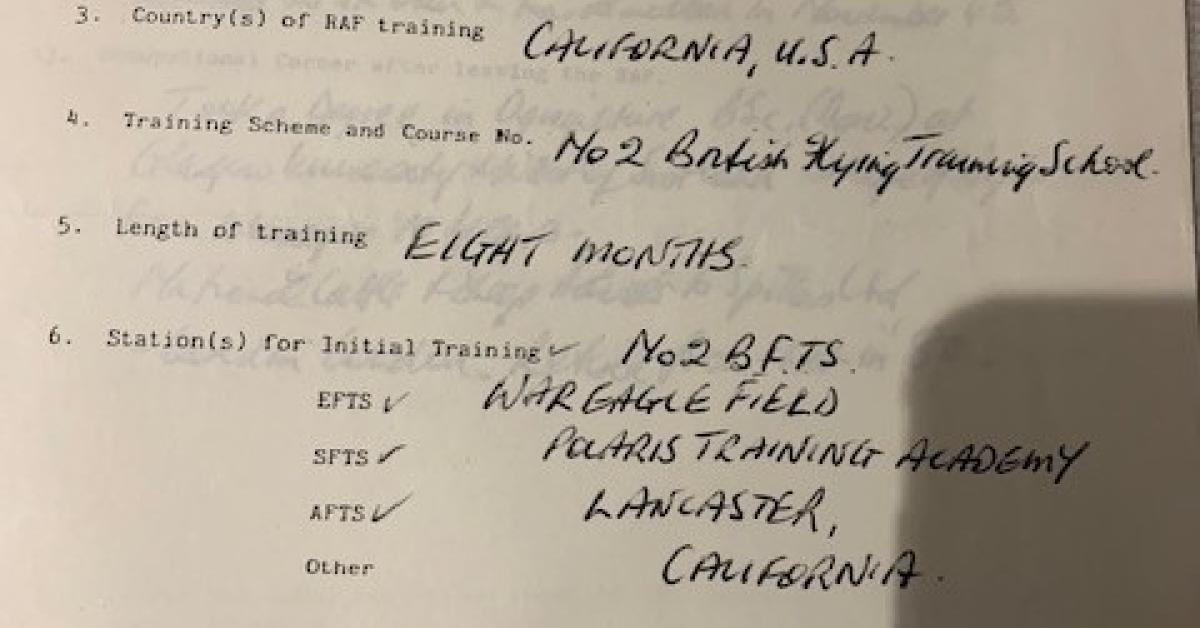 3. Country(s) of RAF training CALIFORNIA, U.S.A.
4. Training Scheme and Course No. No 2 British Flying Training School.
5. Length of training EIGHT MONTHS.
6. Station(s) for Initial Training ✓ No 2 B.F.T.S.
EFTS ✓ WAR EAGLE FIELD
SFTS ✓ POLARIS TRAINING ACADEMY
AFTS ✓ LANCASTER,
Other CALIFORNIA.